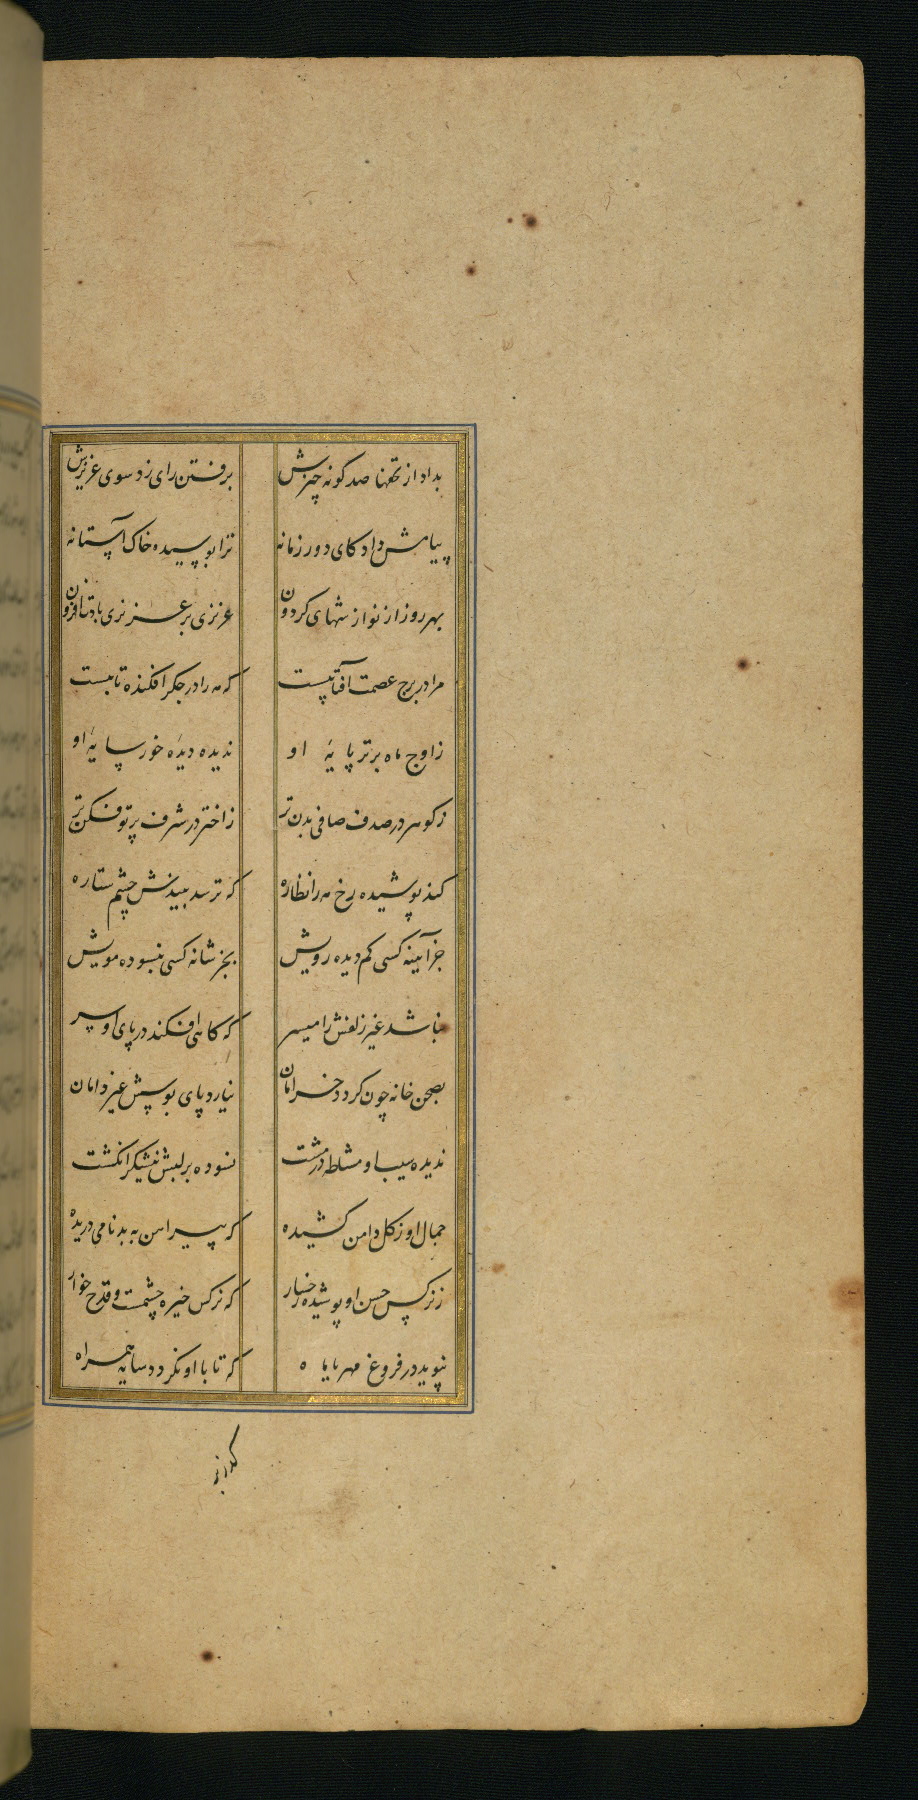 بداد از تحفها صد گونه چیزش برفتن رای زد سوی عزیزش
پیامش داد کای دور زمانه ترا بوسیده خاک آستانه
بهر روز از نوازشهای گردون عزیزی بر عزیزی بادت افزون
مرا در برج عصمت آفتابیست که مه را در جگر افکنده تابیست
ز اوج ماه برتر پایهٔ او ندیده دیدهٔ خور سایهٔ او
ز گوهر در صدف صافی بدن تر ز اختر در شرف پرتو فکن تر
کند پوشیده رخ مه را نظاره که ترسد بیندش چشم ستاره
جز آیینه کسی کم دیده رویش بجز شانه کسی نبسوده مویش
نباشد غیر زلفش را میسر که گاهی افکند در پای او سر
بصحن خانه چون گردد خرامان نیارد پای بوسش غیر دامان
ندیده سیب او مشاطه در مشت نسوده بر لبش نیشکر انگشت
جمال او ز گل دامن کشیده که پیراهن به بدنامی دریده
ز نرگس حسن او پوشیده رخسار که نرگس خیره چشمست و قدح خوار
نپوید در فروغ مهر یا ماه که تا با او نگردد سایه همراه
گذر نه